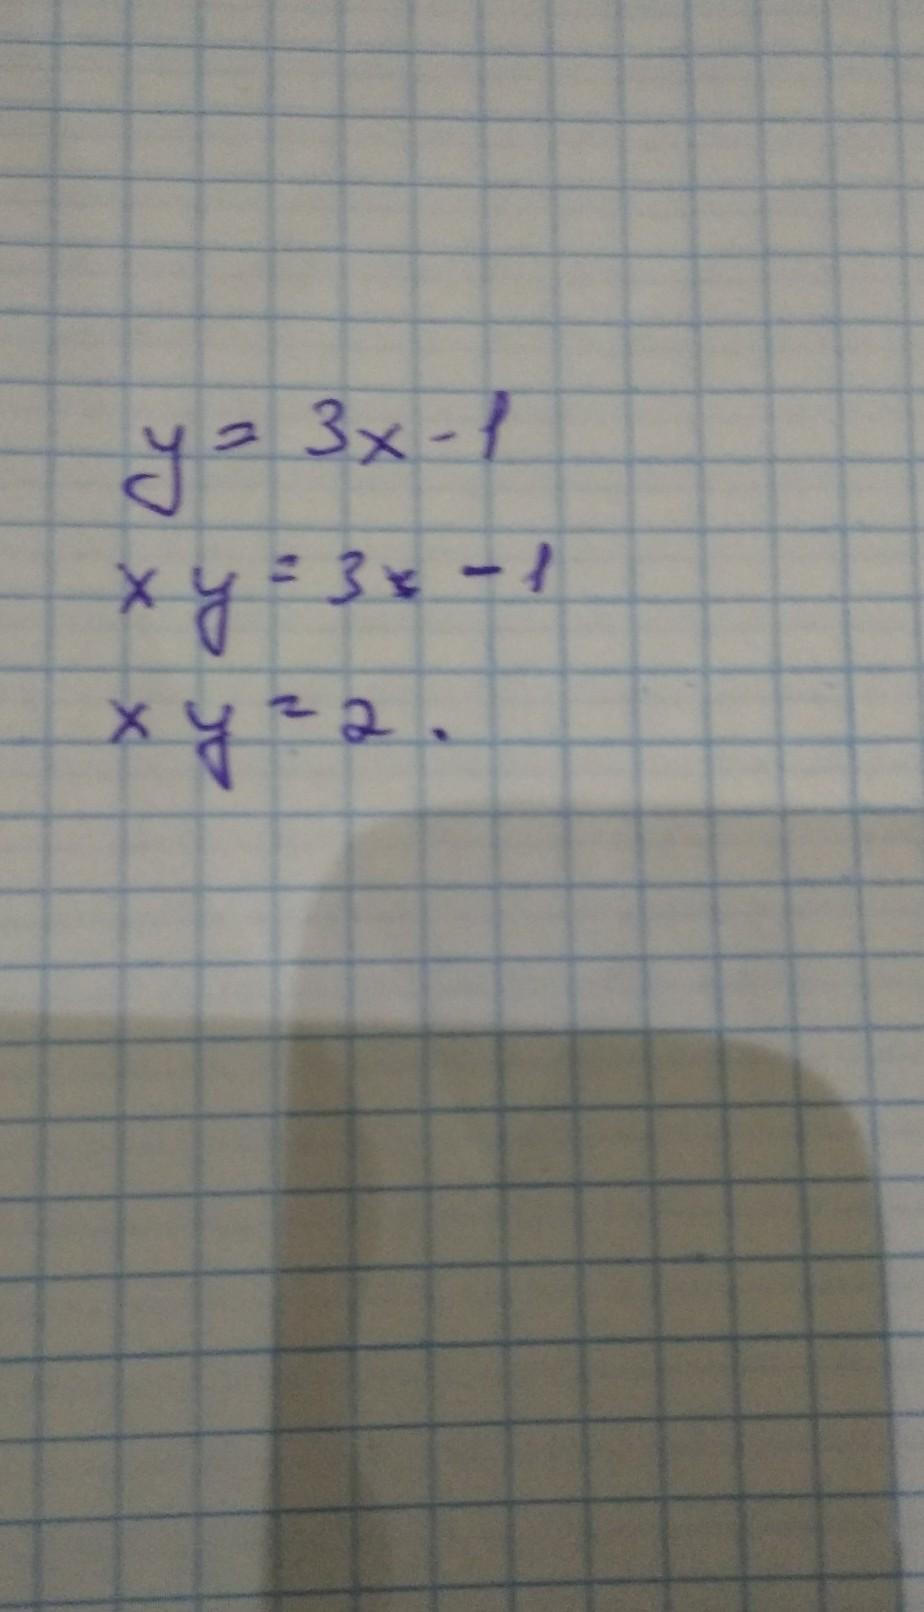 y = 3x - 1
xy = 3x - 1
xy = 2.